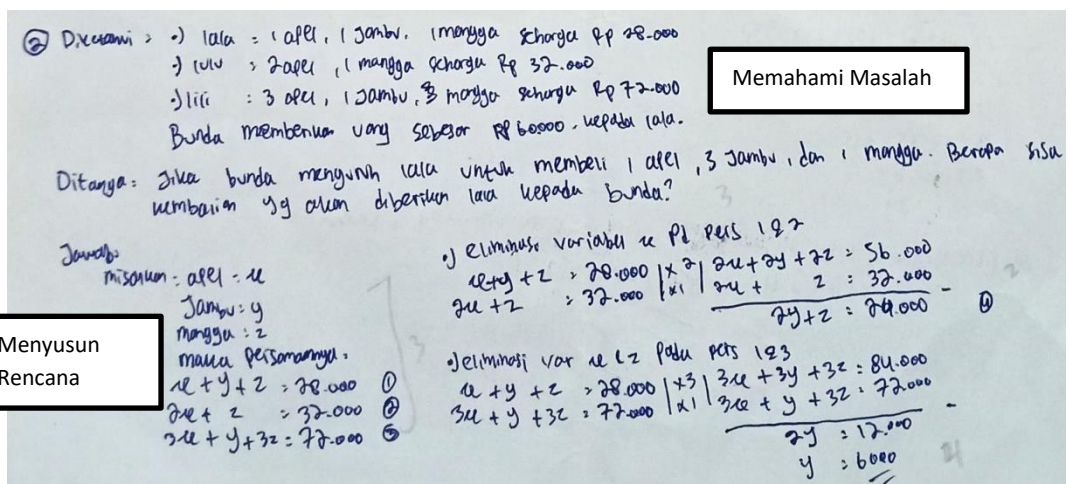 ② Diketahui : •) lala = 1 apel, 1 Jambu, 1 mangga seharga Rp 28.000
•) lulu : 2 apel, 1 mangga seharga Rp 32.000
•) lili : 3 apel, 1 Jambu, 3 mangga seharga Rp 72.000
Bunda memberikan uang sebesar Rp 60000. kepada lala.
Memahami Masalah
Ditanya: Jika bunda menyuruh lala untuk membeli 1 apel, 3 Jambu, dan 1 mangga. Berapa sisa
kembalian yg akan diberikan lala kepada bunda?
Jawab:
misalkan = apel = x
Jambu = y
mangga = z
maka persamaannya.
Menyusun
Rencana
x + y + z = 28.000 ①
2x + z = 32.000 ②
3x + y + 3z = 72.000 ③
•) eliminasi variabel x pd pers 1&2
x+y + z = 28.000 |x 2| 2x+2y + 2z = 56.000
2x + z = 32.000 |x1| 2x + z = 32.000 -
2y+z = 24.000 ④
•) eliminasi var x & z pada pers 1&3
x + y + z = 28.000 |x3| 3x + 3y + 3z = 84.000
3x + y + 3z = 72.000 |x1| 3x + y + 3z = 72.000 -
2y = 12.000
y = 6000